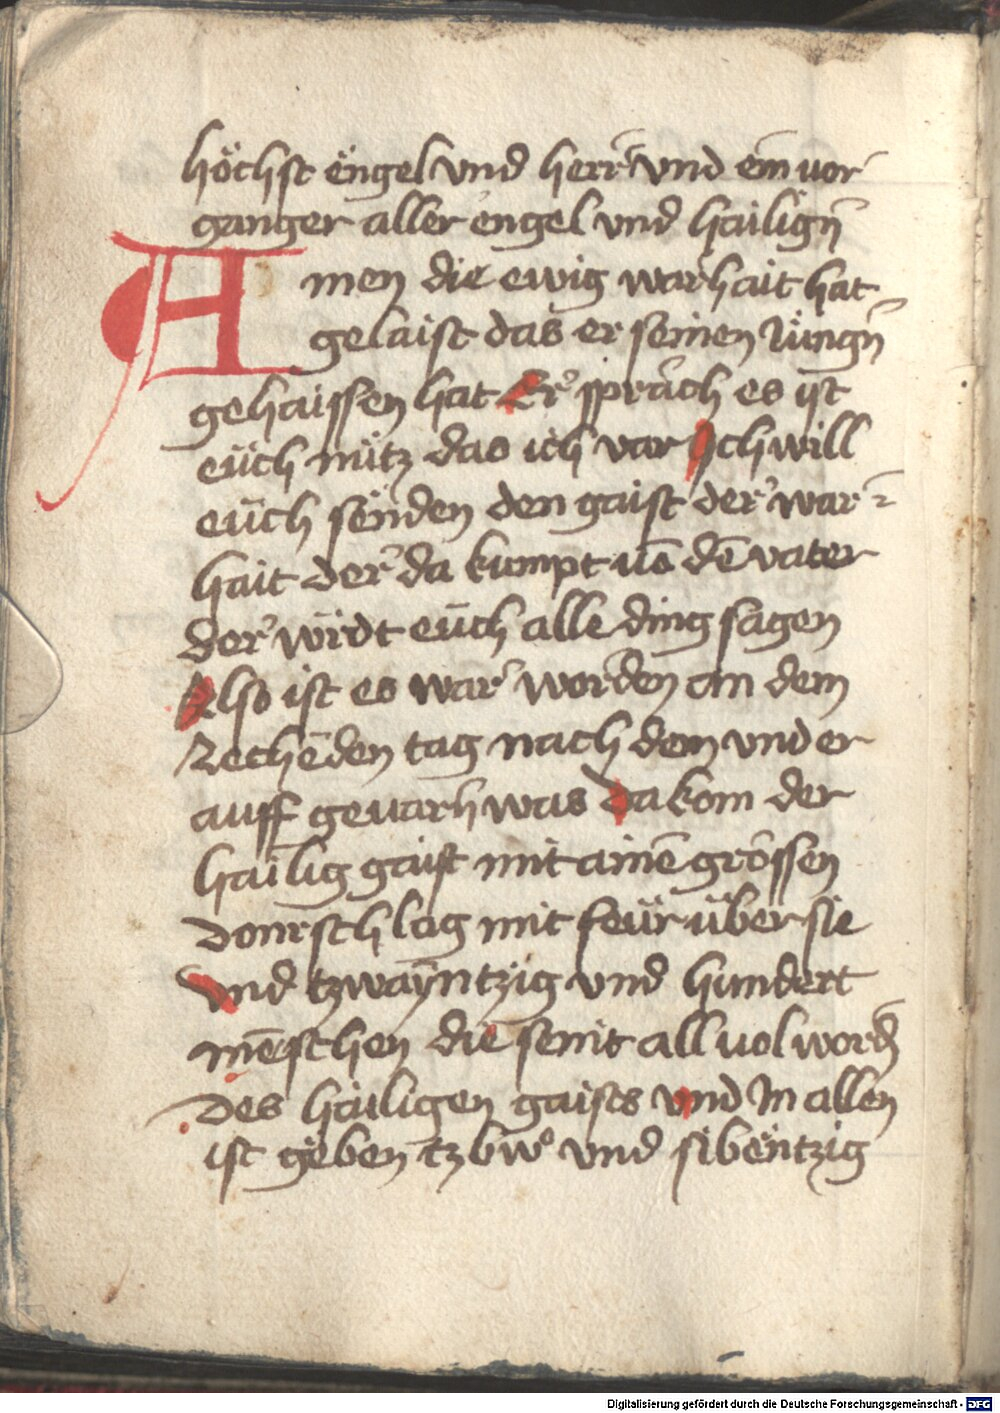 höchst engel vnd herr vnd ein vor
ganger aller engel vnd hailigñ
Amen die ewig warhait hat
gelaist das er seinen Jüngñ
gehaissen hat Er sprach es ist
eüch nütz das ich var Ich will
eüch senden den gaist der war
hait der da kumpt võ dẽ vater
der wirdt eüch alle ding sagen
Also ist es war worden an dem
zechẽden tag nach dem vnd er
auff geuarn was Da kom der
hailig gaist mit ainẽ grossen
donrschlag mit feür über sie
Vnd tzwayntzig vnd hundert
mẽschen die seint all uol wordñ
Des hailigen gaists vnd In allen
ist geben tzbwo vnd sibentzig
Digitalisierung gefördert durch die Deutsche Forschungsgemeinschaft - DFG